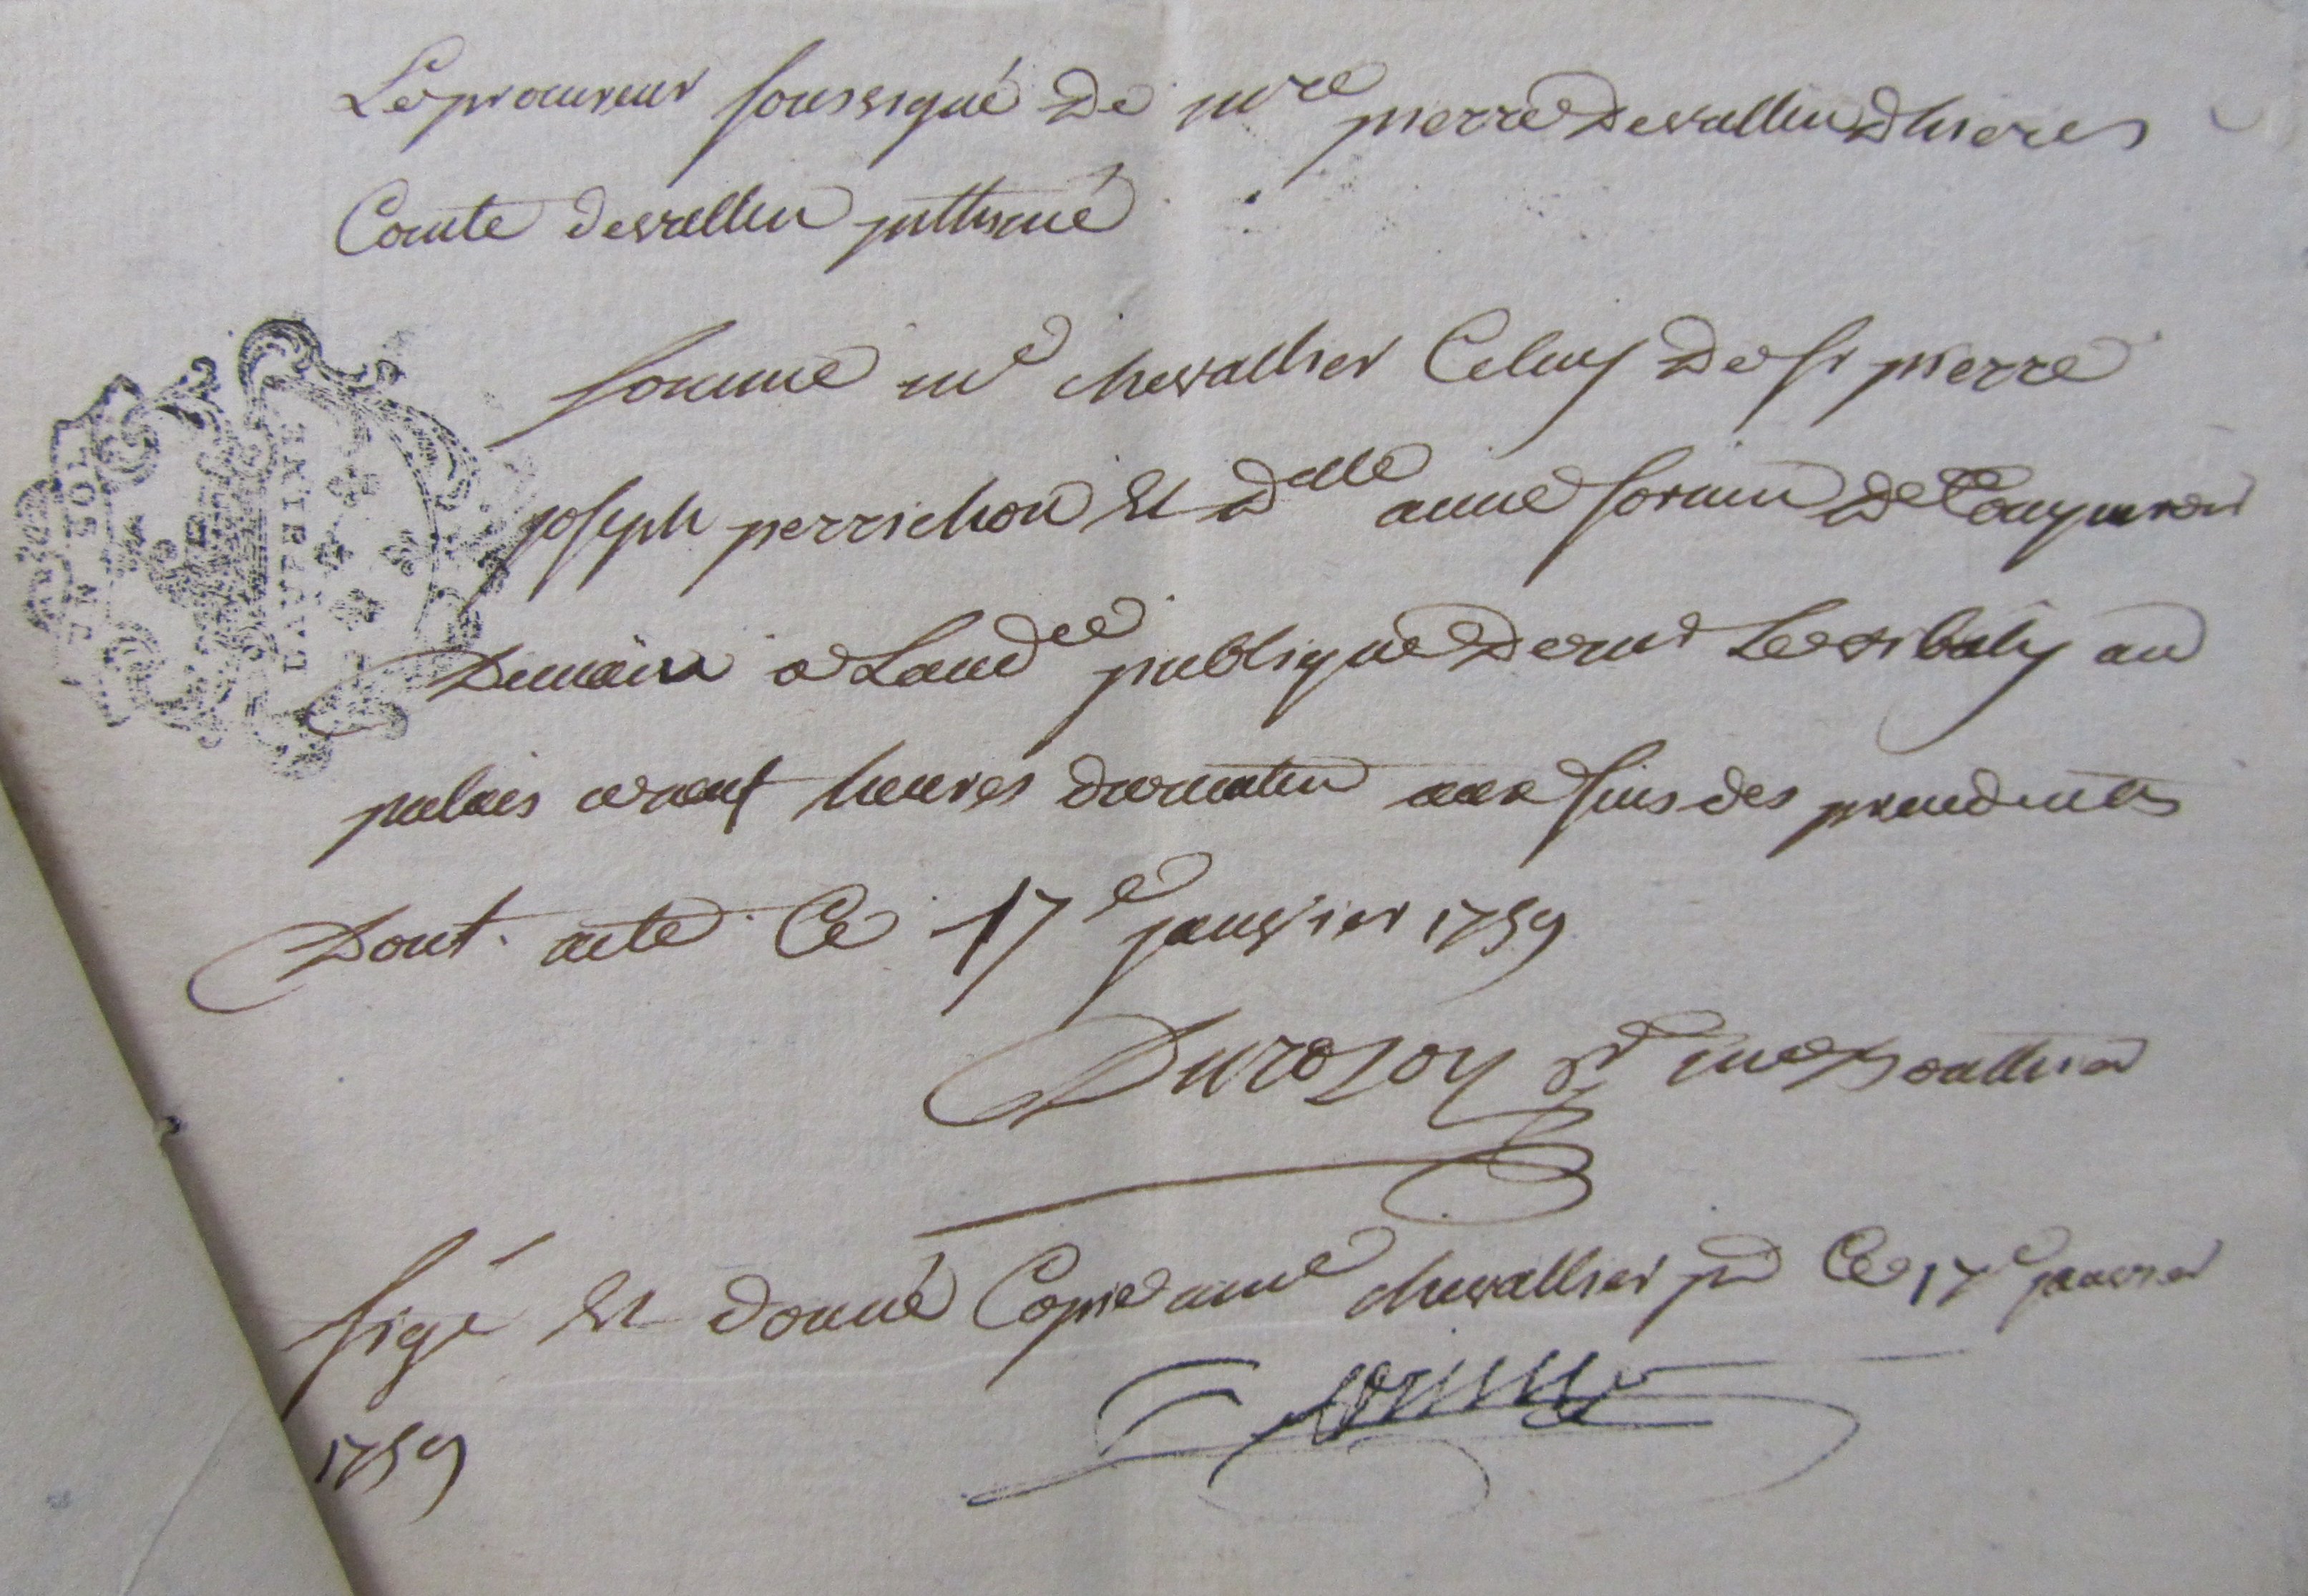 Le procureur soussigné de mre pierre devallin dhieres
Comte devallin
somme me chevallier Celuy de sr pierre
joseph perrichon et delle anne sornin de
Demain a Laudce publique de mr Le au
palais a neuf heures du matin aux fins des
Dont acte Ce 17e janvier 1759
Durozoy
sigé et donné Copie a me chevallier pr Ce 17e janvier
1759
UN SOL